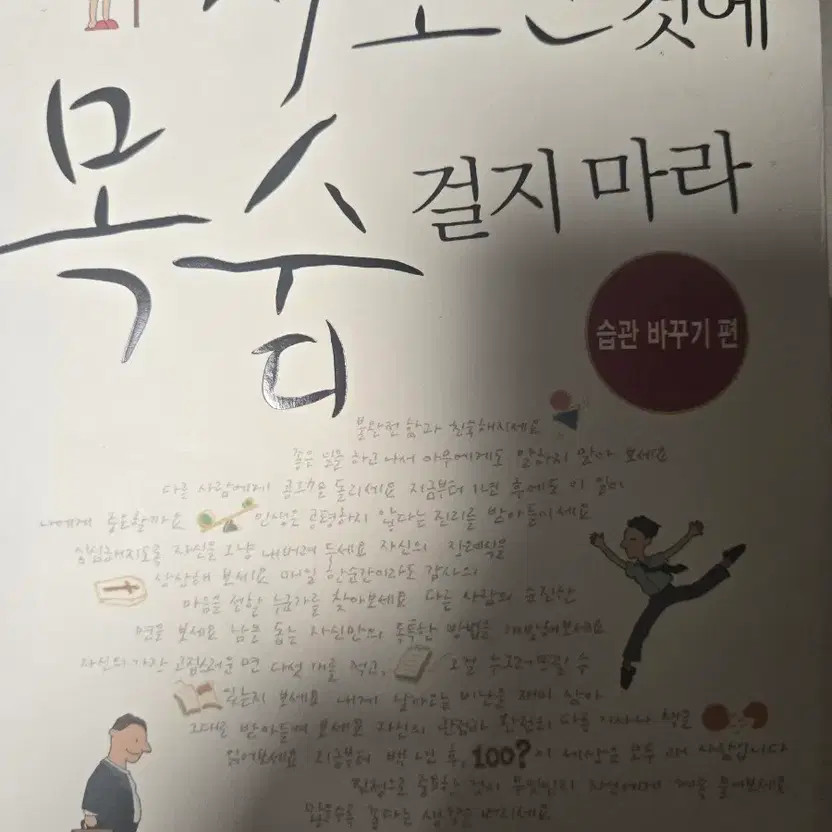 것에
목숨
걸지 마라
습관 바꾸기 편
불완전함과 친숙해지세요
좋은 일을 하고 나서 아무에게도 말하지 말아 보세요
다른 사람에게 공을 돌리세요 지금부터 1년 후에도 이 일이
나에게 중요할까요 인생은 공평하지 않다는 진리를 받아들이세요
심심해지도록 자신을 그냥 내버려 두세요 자신의 장례식을
상상해 보세요 매일 한순간이라도 감사의
마음을 전할 누군가를 찾아보세요 다른 사람의 순진한
면을 보세요 남을 돕는 자신만의 독특한 방법을 개발해보세요
자신의 가장 고집스러운 면 다섯 개를 적고, 누그러뜨릴 수
있는지 보세요 내게 날아오는 비난을 재미 삼아
그대로 받아들여 보세요 자신의 관점과 완전히 다른 기사나 책을
읽어보세요 지금부터 백 년 후, 100? 이 세상은 모두 새 사람입니다
진정으로 중요한 것이 무엇인지 자신에게 계속 물어보세요
많을수록 좋다는 생각은 버리세요